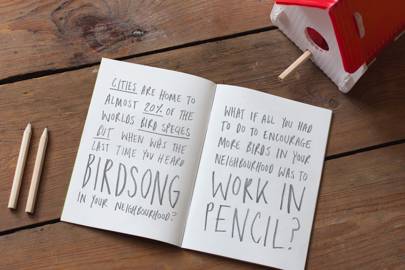 CITIES ARE HOME TO
ALMOST 20% OF THE
WORLDS BIRD SPECIES
BUT WHEN WAS THE
LAST TIME YOU HEARD
BIRDSONG
IN YOUR NEIGHBOURHOOD?
WHAT IF ALL YOU HAD
TO DO TO ENCOURAGE
MORE BIRDS IN YOUR
NEIGHBOURHOOD WAS TO
WORK IN
PENCIL?